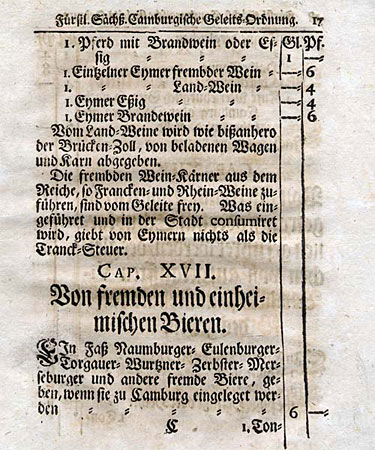 Fürstl. Sächß. Camburgische Geleits-Ordnung. 17
1. Pferd mit Brandwein oder Es- Gl. Pf.
sig " " " 1 —
1. Eintzelner Eymer frembder Wein - — 6
1. " " Land-Wein " — 4
1. Eymer Eßig " " — 4
1. Eymer Brandewein " " — 6
Vom Land-Weine wird wie bißanhero
der Brücken-Zoll, von beladenen Wagen
und Karn abgegeben.
Die frembden Wein-Kärner aus dem
Reiche, so Francken- und Rhein-Weine zu-
führen, sind vom Geleite frey. Was ein-
geführet und in der Stadt consumiret
wird, giebt von Eymern nichts als die
Tranck-Steuer.
CAP. XVII.
Von fremden und einhei-
mischen Bieren.
Ein Faß Naumburger- Eulenburger-
Torgauer- Wurtzner- Zerbster- Mer-
seburger und andere fremde Biere, ge-
ben, wenn sie zu Camburg eingeleget wer-
den " " " " 6 —
C 1. Ton-